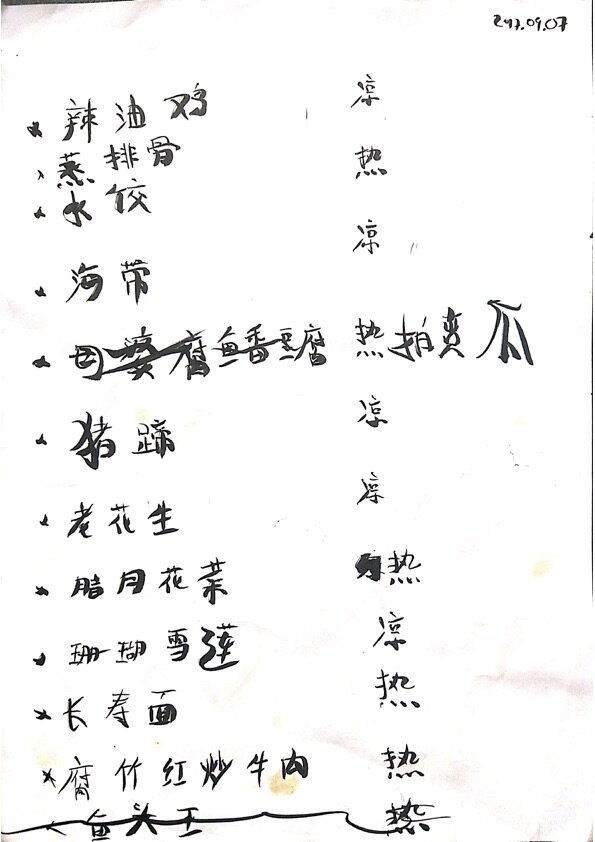 09.07
辣油鸡 凉
蒸排骨 热
水饺
海带 凉
鱼香豆腐 热 拍爽瓜
猪蹄 凉
老花生 凉
腊月花菜 热
珊瑚雪莲 凉
长寿面 热
腐竹红炒牛肉 热
鱼头王 热